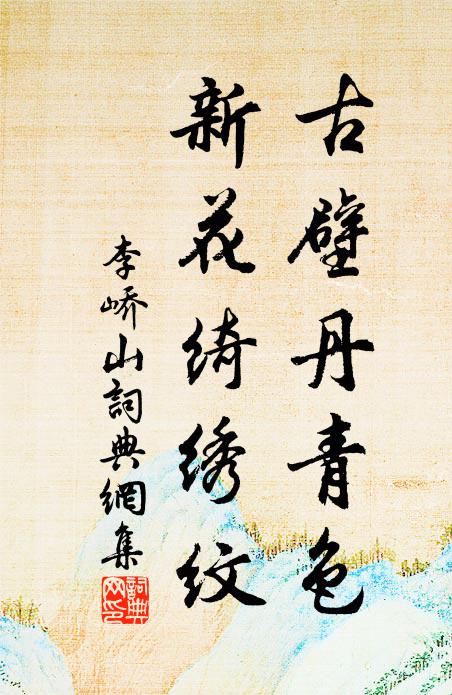 古壁丹青色
新花绮绣纹
李峤山詞典網集
詞典网印